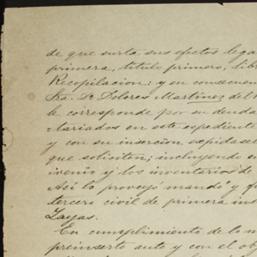 de que surta sus efectos lega
primera, titulo primero, lib
Recopilacion: y en consecuen
Sra. Da. Dolores Martinez del
le corresponde por su deuda
en este expediente
y con su insercion expidase
que soliciten; incluyendo
y los inventarios de
Asi lo proveyó mandó y
tercero civil de primera ins
Zayas.
En cumplimiento de lo m
preinserto auto y con el ob